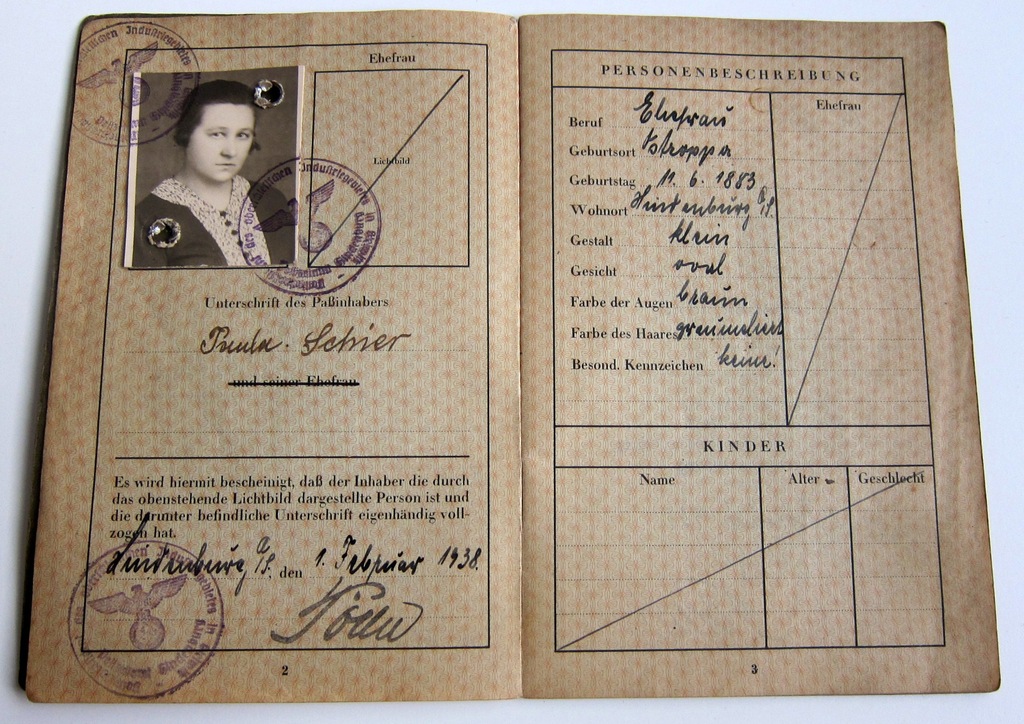 Ehefrau
Lichtbild
Unterschrift des Paßinhabers
Paula Schier
und seiner Ehefrau
Es wird hiermit bescheinigt, daß der Inhaber die durch
das obenstehende Lichtbild dargestellte Person ist und
die darunter befindliche Unterschrift eigenhändig voll-
zogen hat.
Hindenburg O/S, den 1. Februar 1938.
2
PERSONENBESCHREIBUNG
Ehefrau
Beruf Ehefrau
Geburtsort
Geburtstag 11. 6. 1883
Wohnort Hindenburg O/S.
Gestalt klein
Gesicht oval
Farbe der Augen braun
Farbe des Haares graumeliert
Besond. Kennzeichen keine!
KINDER
Name Alter Geschlecht
3